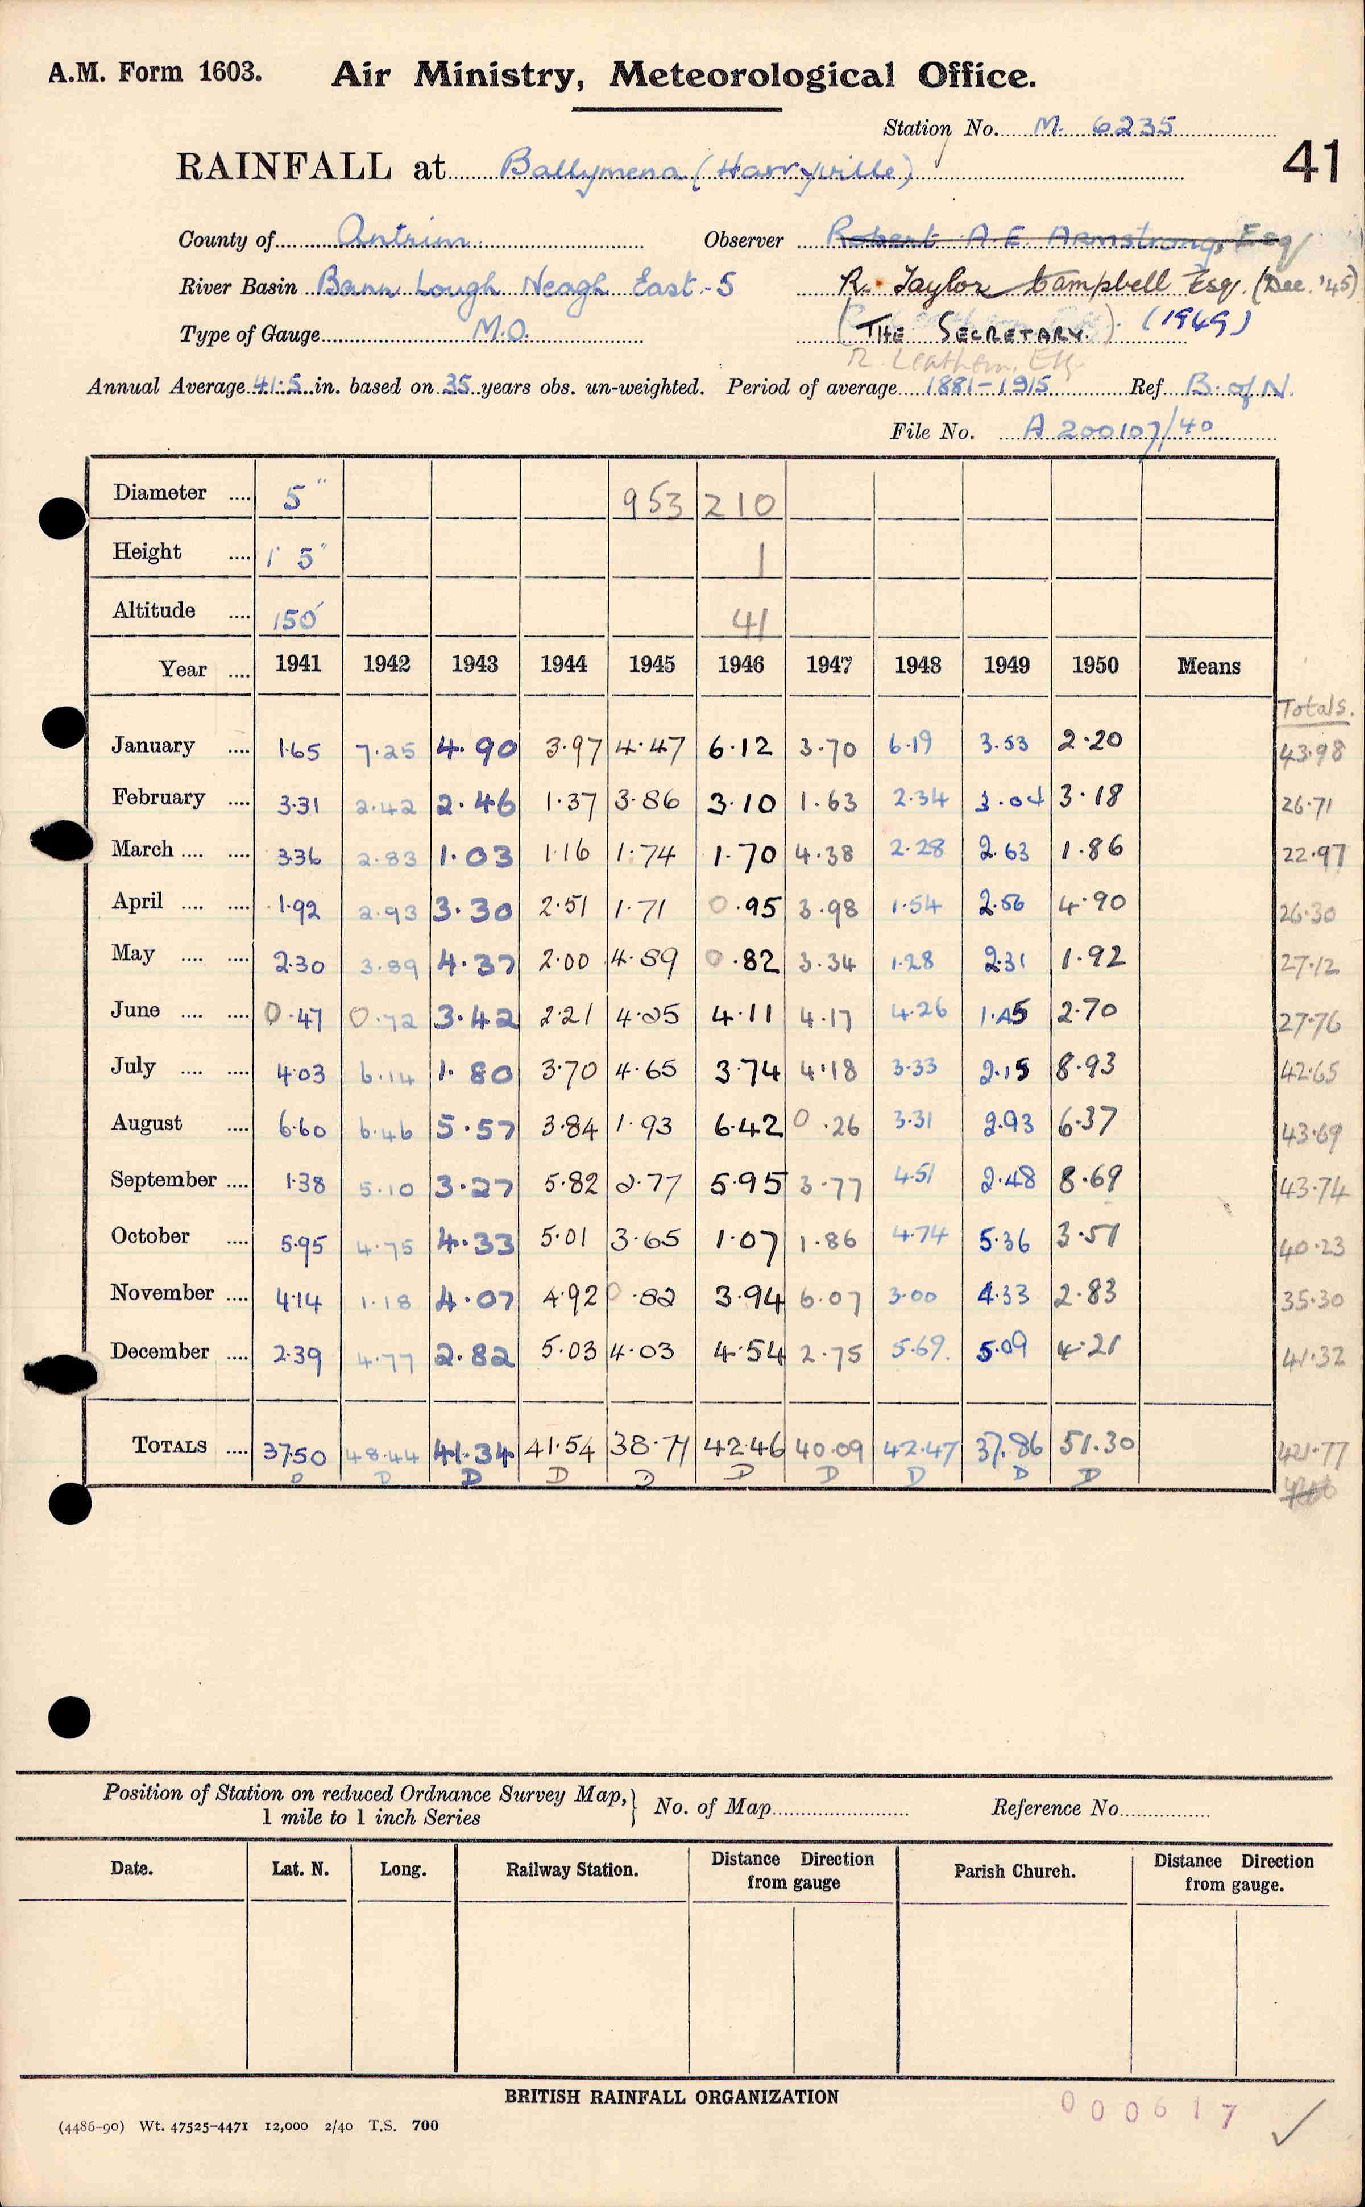 A.M. Form 1603. Air Ministry, Meteorological Office.
Station No. M. 6235
41
RAINFALL at Ballymena (Harryville)
County of Antrim Observer Robert A.E. Armstrong, Esq
River Basin Bann Lough Neagh East-5 R. Taylor Campbell Esq. (Dec. '45)
Type of Gauge M.O. (THE SECRETARY.) (1949)
R. Leathem, Esq.
Annual Average 41.5 in. based on 35 years obs. un-weighted. Period of average 1881-1915 Ref B. of N.
File No. A 200107/40
Diameter .... 5" 953 210
Height .... 1' 5" 1
Altitude .... 150' 41
Year .... 1941 1942 1943 1944 1945 1946 1947 1948 1949 1950 Means
Totals.
January .... 1.65 7.25 4.90 3.97 4.47 6.12 3.70 6.19 3.53 2.20 43.98
February .... 3.31 2.42 2.46 1.37 3.86 3.10 1.63 2.34 3.04 3.18 26.71
March .... .... 3.36 2.83 1.03 1.16 1.74 1.70 4.38 2.28 2.63 1.86 22.97
April .... .... 1.92 2.93 3.30 2.51 1.71 0.95 3.98 1.54 2.56 4.90 26.30
May .... .... 2.30 3.89 4.37 2.00 4.89 0.82 3.34 1.28 2.31 1.92 27.12
June .... .... 0.47 0.72 3.42 2.21 4.25 4.11 4.17 4.26 1.45 2.70 27.76
July .... .... 4.03 6.14 1.80 3.70 4.65 3.74 4.18 3.33 2.15 8.93 42.65
August .... 6.60 6.46 5.57 3.84 1.93 6.42 0.26 3.31 2.93 6.37 43.69
September .... 1.38 5.10 3.27 5.82 2.77 5.95 3.77 4.51 2.48 8.69 43.74
October .... 5.95 4.75 4.33 5.01 3.65 1.07 1.86 4.74 5.36 3.51 40.23
November .... 4.14 1.18 4.07 4.92 0.82 3.94 6.07 3.00 4.33 2.83 35.30
December .... 2.39 4.77 2.82 5.03 4.03 4.54 2.75 5.69. 5.09 4.21 41.32
TOTALS .... 37.50 48.44 41.34 41.54 38.77 42.46 40.09 42.47 37.86 51.30 421.77
D D D D D D D D D D
Position of Station on reduced Ordnance Survey Map, 1 mile to 1 inch Series } No. of Map Reference No.
Date. Lat. N. Long. Railway Station. Distance Direction from gauge Parish Church. Distance Direction from gauge.
BRITISH RAINFALL ORGANIZATION
000617
(4486-90) Wt. 47525-4471 12,000 2/40 T.S. 700